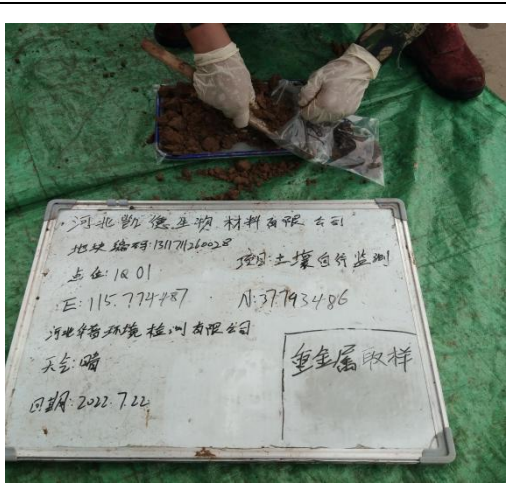 河北凯德生物材料有限公司
地块编码:1311711260028
点位:1Q01
项目:土壤自行监测
E:115.774487
N:37.793486
河北华普环境检测有限公司
天气:晴
重金属取样
日期:2022.7.22